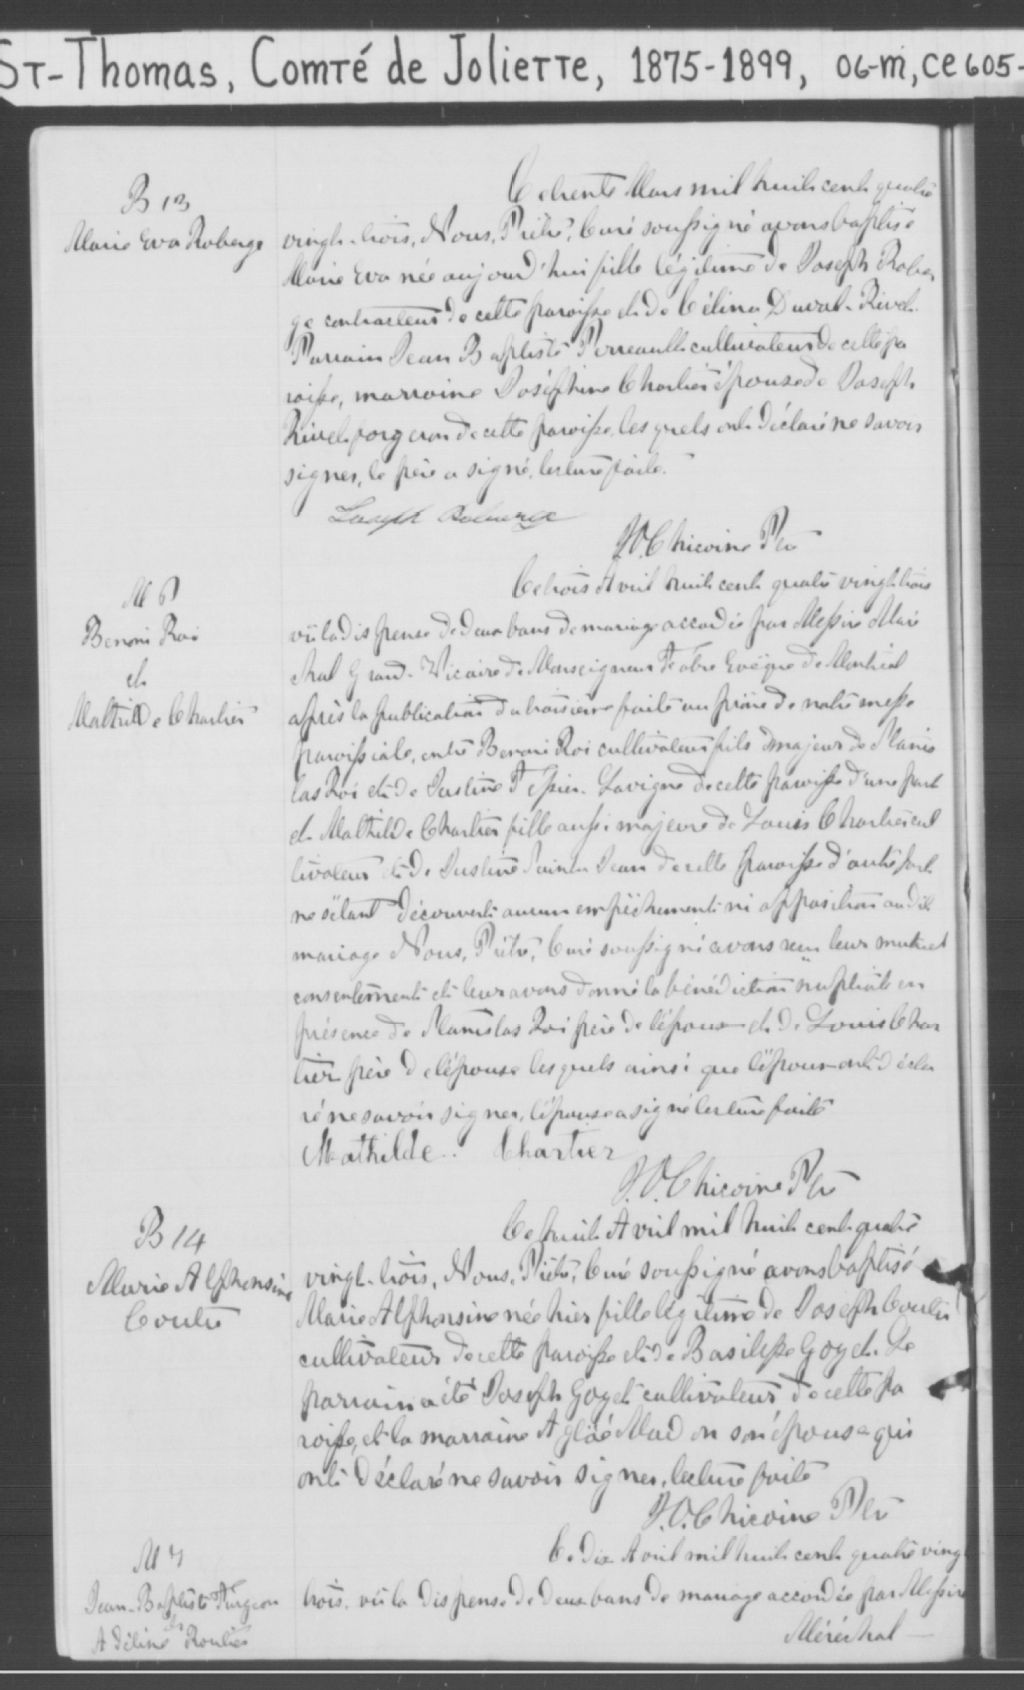 ST-Thomas, Comté de Joliette, 1875-1899, 06-M, CE605-
B 13
Marie Eva Roberge
Ce trente Mars mil huit cent quatre
vingt-trois, Nous, Prêtre, Curé soussigné avons baptisé
Marie Eva née aujourd'hui fille légitime de Joseph Rober
ge contracteur de cette paroisse et de Célina Duval.
Parrain Jean Baptiste Perreault cultivateur de cette pa
roisse, marraine Joséphine Chartier épouse de Joseph
Rivet forgeron de cette paroisse, lesquels ont déclaré ne savoir
signer, le père a signé, lecture faite.
Joseph Roberge
J.O. Chicoine Ptre
M 6
Benoni Roi
et
Mathilde Chartier
Ce trois Avril huit cent quatre vingt trois
vû la dispense de deux bans de mariage accordée par Messire Maré
chal Grand-Vicaire de Monseigneur Fabre Evêque de Montréal
après la publication du troisième faite au prône de notre messe
paroissiale, entre Benoni Roi cultivateur fils majeur de Stanis
las Roi et de Justine Tessier-Lavigne de cette paroisse d'une part
et Mathilde Chartier fille aussi majeure de Louis Chartier cul
tivateur et de Justine Saint Jean de cette paroisse d'autre part
ne s'étant découvert aucun empêchement ni opposition au dit
mariage Nous, Prêtre, Curé soussigné avons reçu leur mutuel
consentement et leur avons donné la bénédiction nuptiale en
présence de Stanislas Roi père de l'époux et de Louis Char
tier père de l'épouse lesquels ainsi que l'époux ont décla
ré ne savoir signer, l'épouse a signé lecture faite
Mathilde Chartier
J.O. Chicoine Ptre
B 14
Marie Alphonsine
Coutu
Ce huit Avril mil huit cent quatre
vingt-trois, Nous, Prêtre, Curé soussigné avons baptisé
Marie Alphonsine née hier fille légitime de Joseph Coutu
cultivateur de cette paroisse et de Basilisse Goyet. Le
parrain a été Joseph Goyet cultivateur de cette pa
roisse, et la marraine Aglaé son épouse qui
ont déclaré ne savoir signer, lecture faite
J.O. Chicoine Ptre
M 7
Jean-Baptiste Turgeon
et
Adéline Roulier
Ce dix Avril mil huit cent quatre ving
trois, vû la dispense de deux bans de mariage accordée par Messire
Maréchal